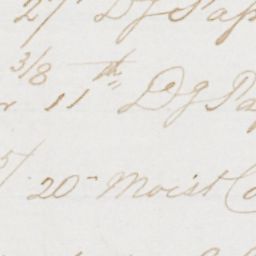 27 Dg Pap
3/8
r 11th Dg Pa
5/ 20 - Moist Co